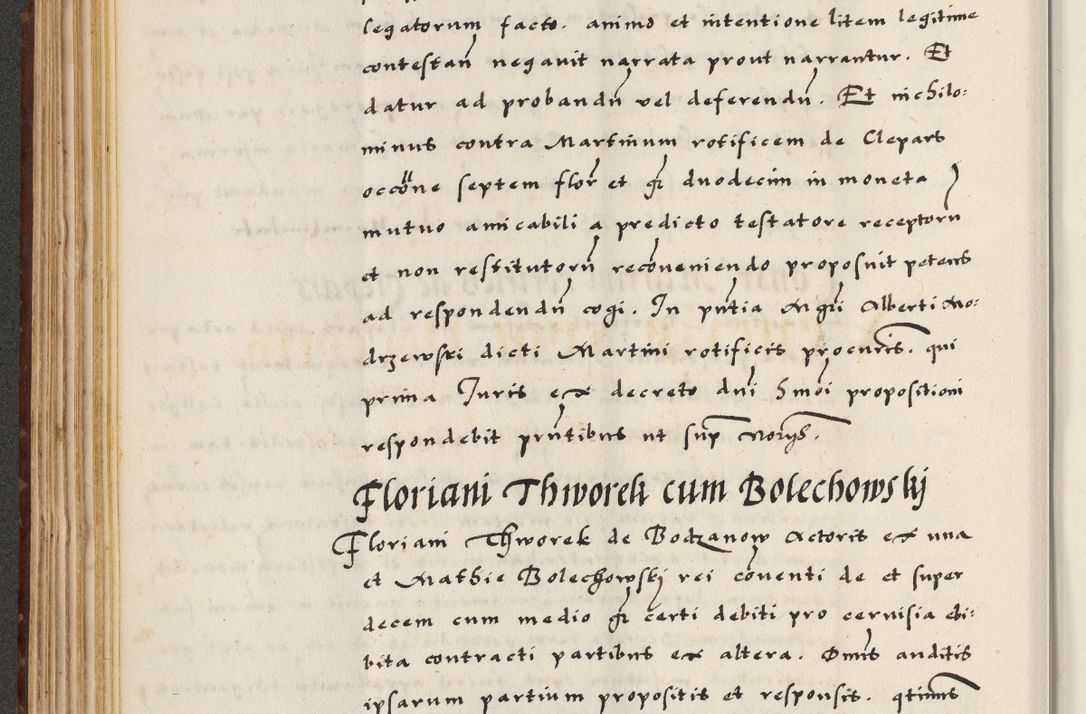 legatorum facto. animo et intentione litem legitime
contestan̄ negauit narrata prout narrantur. Et
datur ad probandū vel deferendū. Et nichilo:
minus contra Martinum rotificem de Clepars
occōne septem flor et gr duodecim in moneta
mutuo amicabili a predicto testatore receptorū
et non restitutorū recōueniendo proposuit petens
ad respondendū cogi. In pn̄tia Mgr̄i Alberti Mo:
drzewski dicti Martini rotificis procuris. qui
prima Iuris ex decreto dn̄i Smoi propositioni
respondebit pn̄tibus ut sup̄
Floriani Thworek cum Bolechowskÿ
Floriani Thworek de Bodzanow Actoris ex una
et Mathie Bolechowskj rei cōuenti de et super
decem cum medio gr certi debiti pro ceruisia ebi:
bita contracti partibus ex altera. Om̄is auditis
ipsarum partium propositis et responsis.